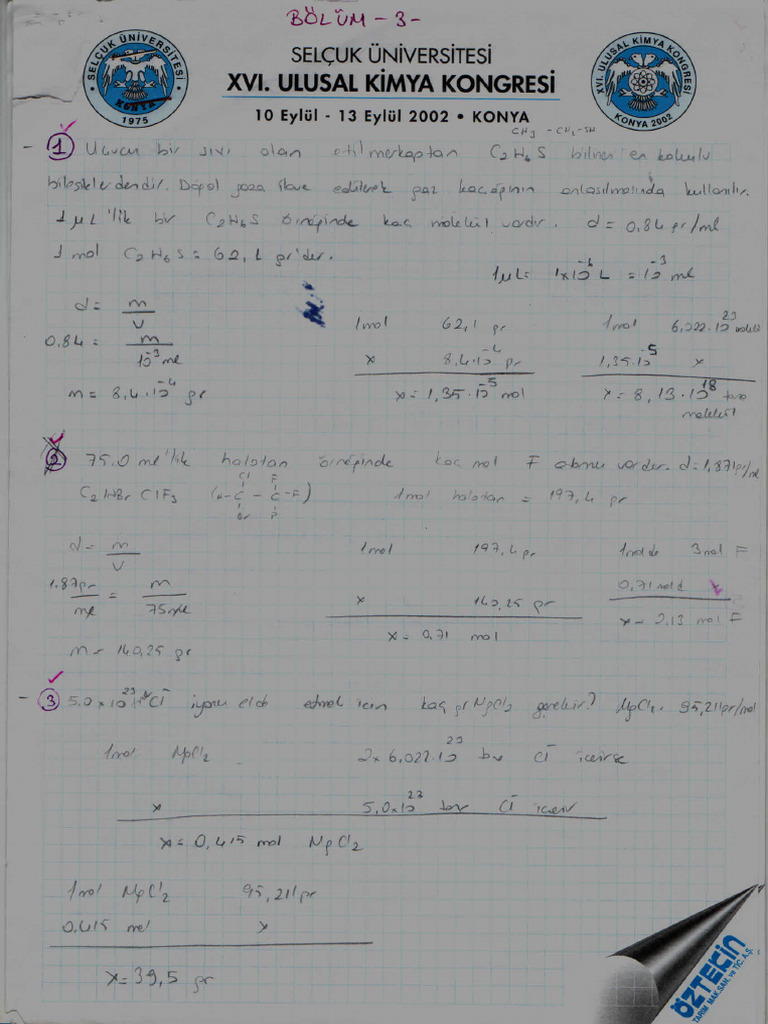 BÖLÜM - 3 -
SELÇUK ÜNİVERSİTESİ
XVI. ULUSAL KİMYA KONGRESİ
10 Eylül - 13 Eylül 2002 • KONYA
SELÇUK ÜNİVERSİTESİ
KONYA
1975
XVI. ULUSAL KİMYA KONGRESİ
KONYA 2002
CH3 - CH2 - SH
1 Uçucu bir sıvı olan etilmerkaptan C2H6S bilinen en kokulu
bileşiklerdendir. Doğal gaza ilave edilerek gaz kaçağının anlaşılmasında kullanılır.
1 μL'lik bir C2H6S örneğinde kaç molekül vardır. d = 0,84 gr/ml
1 mol C2H6S = 62,1 gr'dır.
1μL = 1x10^-6 L = 10^-3 ml
d = m / V
0,84 = m / 10^-3 ml
m = 8,4·10^-4 gr
1 mol 62,1 gr
x 8,4·10^-4 gr
x = 1,35·10^-5 mol
1 mol 6,022·10^23 molekül
1,35·10^-5 x
x = 8,13·10^18 tane
molekül
2 75.0 ml'lik halotan örneğinde kaç mol F atomu vardır. d = 1,871 gr/ml
C2HBrClF3 (H-C-C-F) 1 mol halotan = 197,4 gr
Cl F
Br F
d = m / V
1.87 gr / ml = m / 75 ml
m = 140,25 gr
1 mol 197,4 gr
x 140,25 gr
x = 0,71 mol
1 molde 3 mol F
0,71 molde x
x = 2.13 mol F
3 5.0x10^23 Cl⁻ iyonu elde etmek için kaç gr MgCl2 gerekir? MgCl2: 95,211 gr/mol
1 mol MgCl2 2x6,022·10^23 tane Cl⁻ içerirse
x 5.0x10^23 tane Cl⁻ içerir
x = 0,415 mol MgCl2
1 mol MgCl2 95,211 gr
0.415 mol x
x = 39,5 gr
ÖZTEKİN
TARIM MAK.SAN. ve TİC. A.Ş.